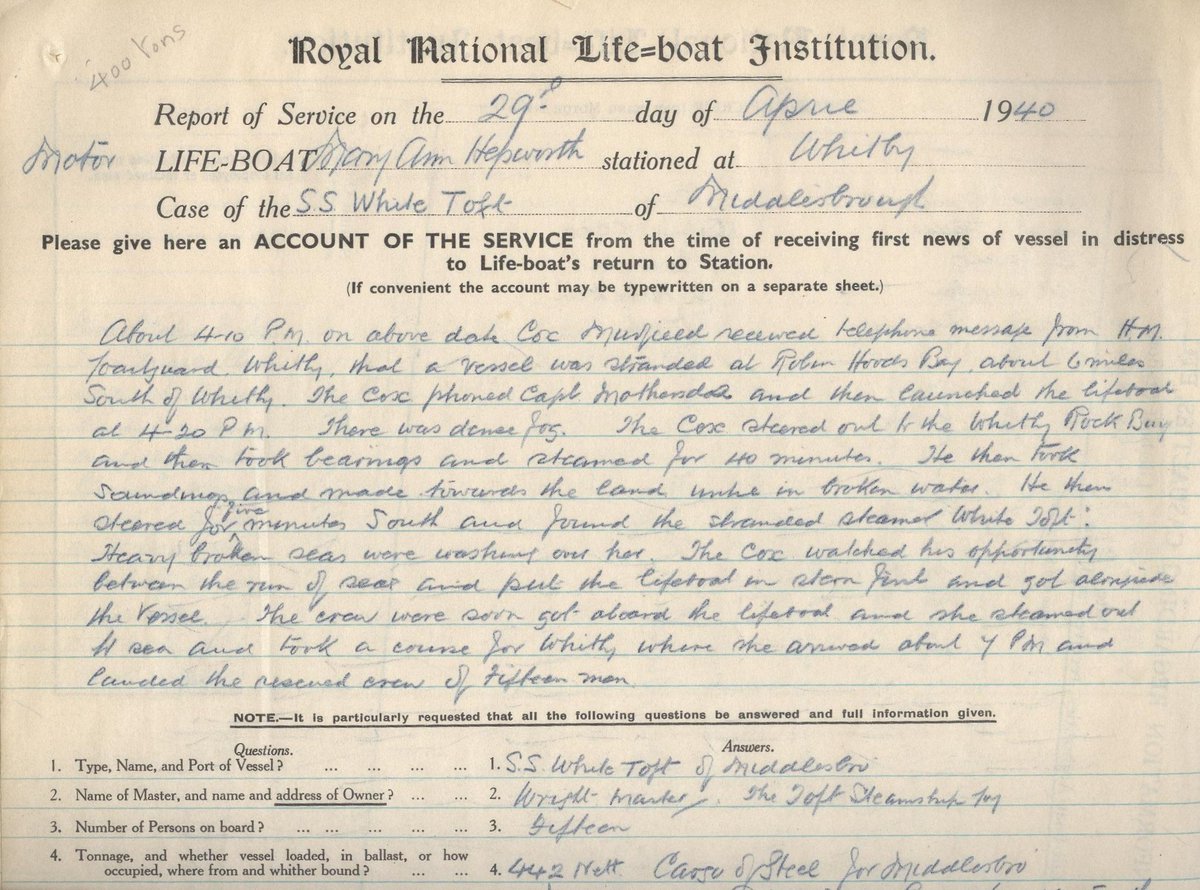 400 Tons
Royal National Life=boat Institution.
Report of Service on the 29th day of April 1940
Motor LIFE-BOAT Mary Ann Hepworth stationed at Whitby
Case of the SS White Toft of Middlesbrough
Please give here an ACCOUNT OF THE SERVICE from the time of receiving first news of vessel in distress
to Life-boat's return to Station.
(If convenient the account may be typewritten on a separate sheet.)
About 4-10 P.M. on above date Cox received telephone message from H.M.
Coastguard, Whitby, that a vessel was stranded at Robin Hoods Bay, about 6 miles
South of Whitby. The Cox phoned Capt and then launched the lifeboat
at 4-20 P.M. There was dense fog. The Cox steered out to the Whitby Rock Buoy
and then took bearings and steamed for 40 minutes. He then took
Soundings and made towards the land until in broken water. He then
steered for five minutes South and found the stranded steamer White Toft.
Heavy broken seas were washing over her. The Cox watched his opportunity
between the run of seas and put the lifeboat in stern first and got alongside
the vessel. The crew were soon got aboard the lifeboat and she steamed out
to sea and took a course for Whitby where she arrived about 7 PM and
landed the rescued crew of Fifteen men.
NOTE.—It is particularly requested that all the following questions be answered and full information given.
Questions. Answers.
1. Type, Name, and Port of Vessel? ... ... ... ... 1. S.S. White Toft of Middlesbro
2. Name of Master, and name and address of Owner? ... ... 2. Wright Master. The Toft Steamship Coy
3. Number of Persons on board? ... ... ... ... ... 3. Fifteen
4. Tonnage, and whether vessel loaded, in ballast, or how
occupied, where from and whither bound? ... ... 4. 442 Nett Cargo of Steel for Middlesbro